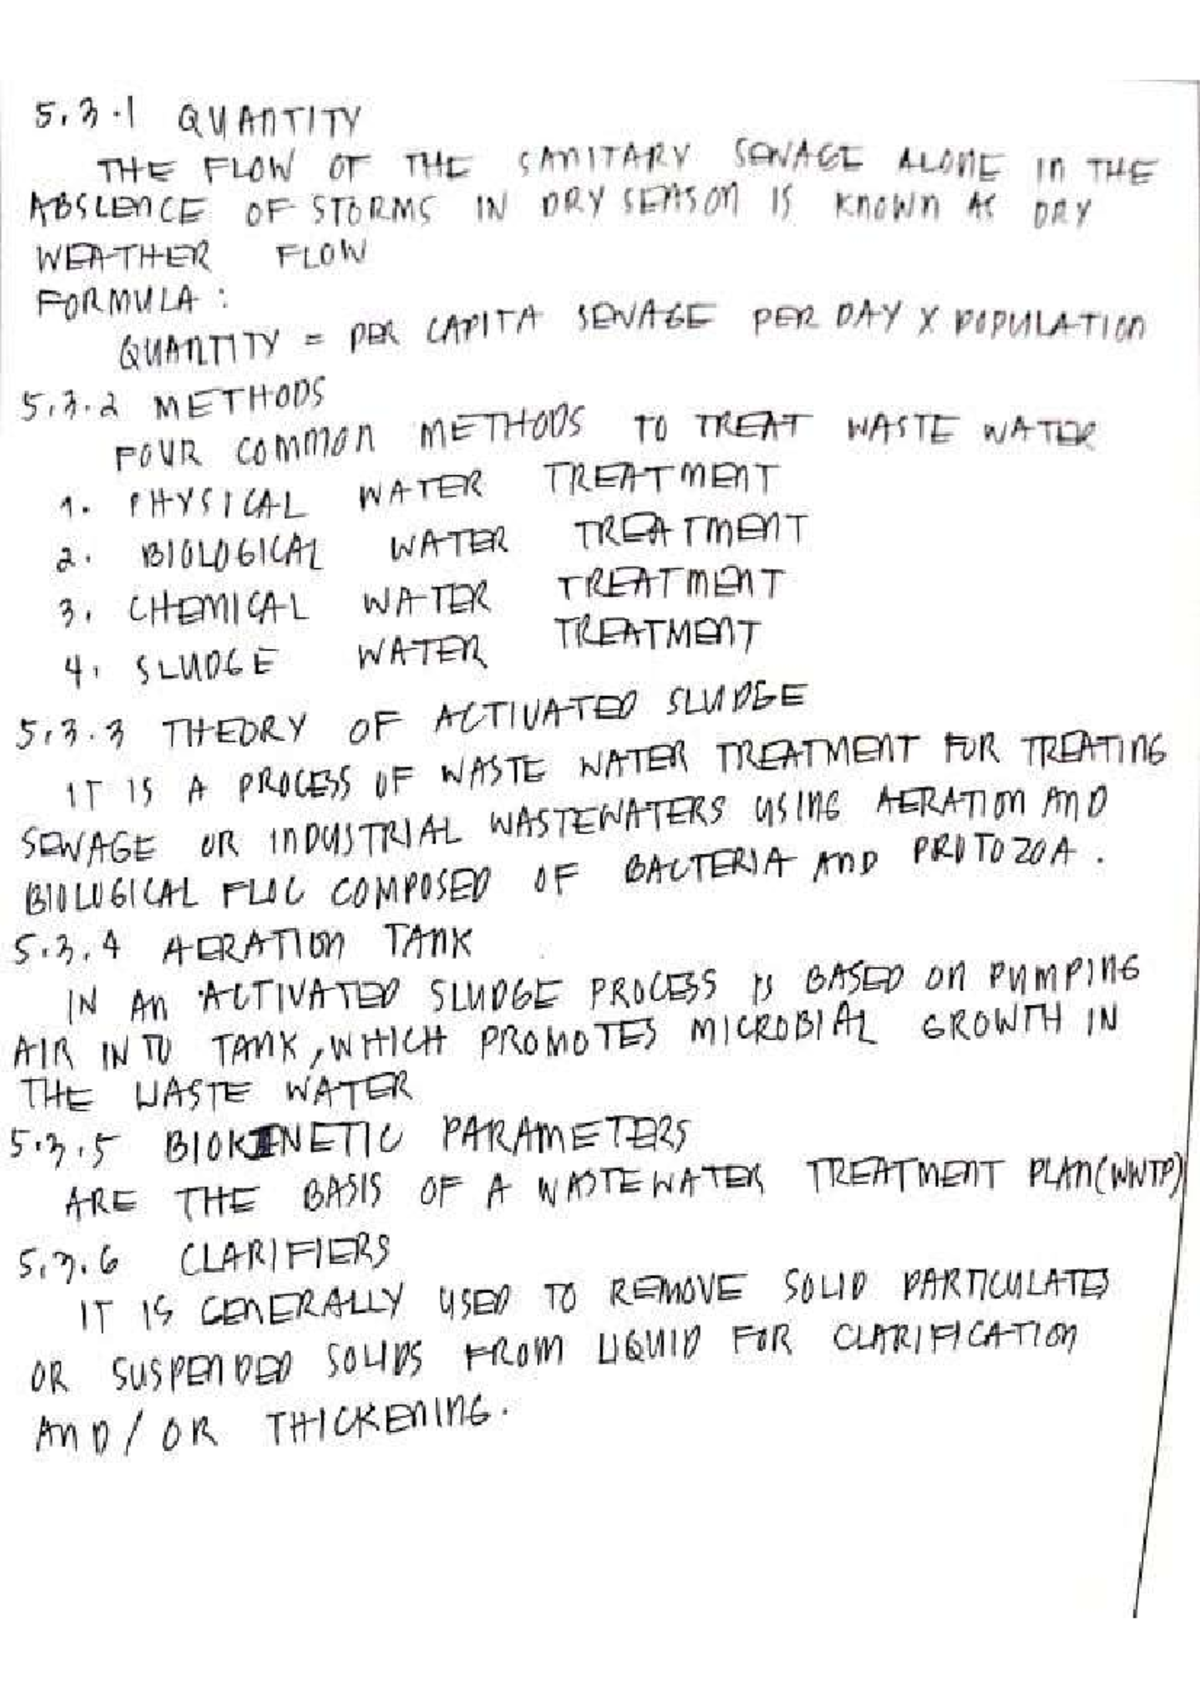 5.3.1 QUANTITY
THE FLOW OF THE SANITARY SEWAGE ALONE IN THE
ABSLENCE OF STORMS IN DRY SEASON IS KNOWN AS DRY
WEATHER FLOW
FORMULA :
QUANTITY = PER CAPITA SEWAGE PER DAY X POPULATION
5.3.2 METHODS
FOUR COMMON METHODS TO TREAT WASTE WATER
1. PHYSICAL WATER TREATMENT
2. BIOLOGICAL WATER TREATMENT
3. CHEMICAL WATER TREATMENT
4. SLUDGE WATER TREATMENT
5.3.3 THEORY OF ACTIVATED SLUDGE
IT IS A PROCESS OF WASTE WATER TREATMENT FOR TREATING
SEWAGE OR INDUSTRIAL WASTEWATERS USING AERATION AND
BIOLOGICAL FLOC COMPOSED OF BACTERIA AND PROTOZOA.
5.3.4 AERATION TANK
IN AN ACTIVATED SLUDGE PROCESS IS BASED ON PUMPING
AIR INTO TANK, WHICH PROMOTES MICROBIAL GROWTH IN
THE WASTE WATER
5.3.5 BIOKINETIC PARAMETERS
ARE THE BASIS OF A WASTEWATER TREATMENT PLAN(WWTP)
5.3.6 CLARIFIERS
IT IS GENERALLY USED TO REMOVE SOLID PARTICULATES
OR SUSPENDED SOLIDS FROM LIQUID FOR CLARIFICATION
AND/OR THICKENING.